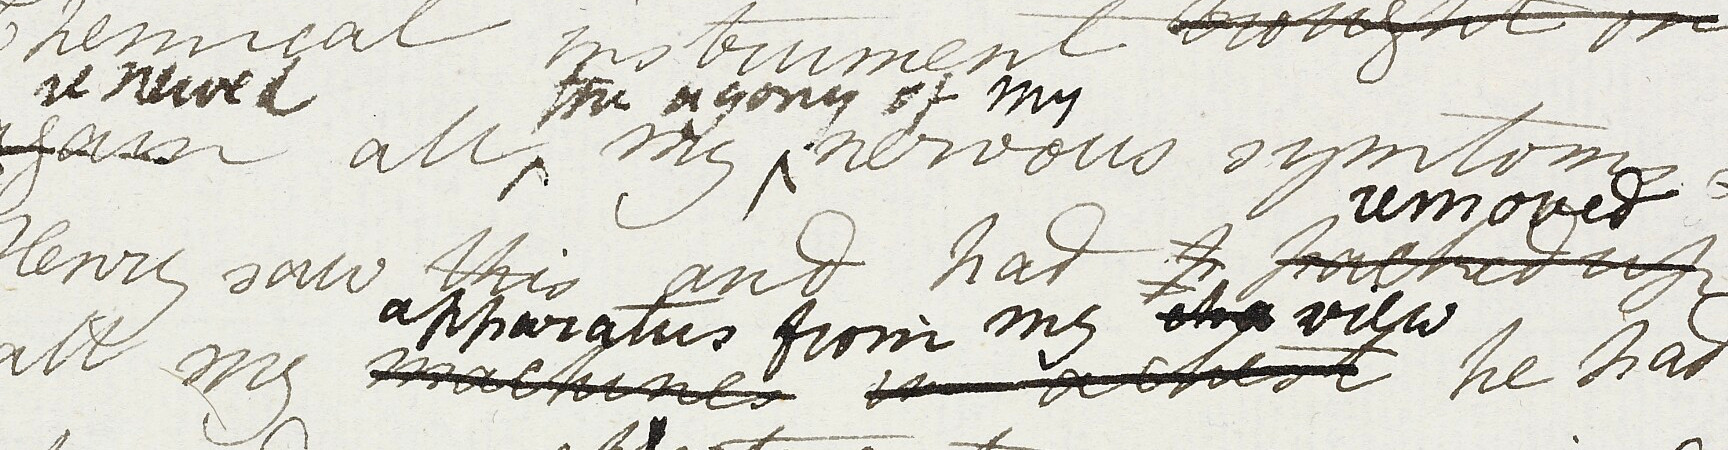 Chemical instrument brought on
renewed the agony of my
again all my nervous symptoms
removed
Henry saw this and had packed up
apparatus from my view
all my machines in a chest he had